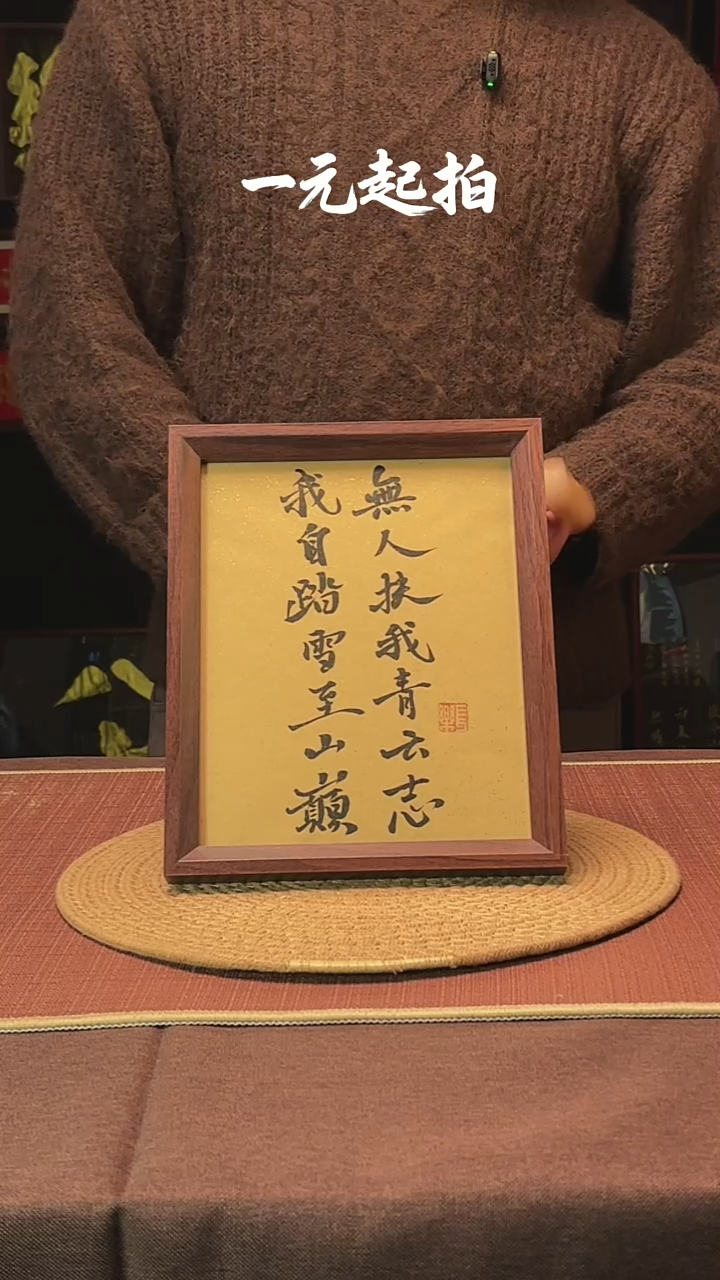 一元起拍
無人扶我青云志
我自踏雪至山巔